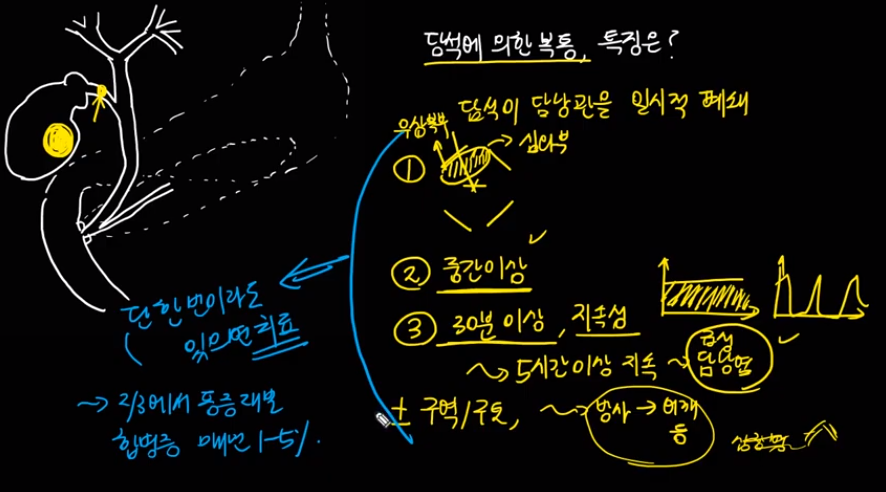 담석에 의한 복통, 특징은?
담석이 담낭관을 일시적 폐쇄
우상복부
① → 심와부
② 중간이상
③ 30분 이상, 지속성
→ 5시간 이상 지속 → 급성 담낭염
± 구역/구토, → 방사 → 어깨 등
단 한번이라도
있으면 치료
→ 2/3에서 통증재발
합병증 매년 1-5%.